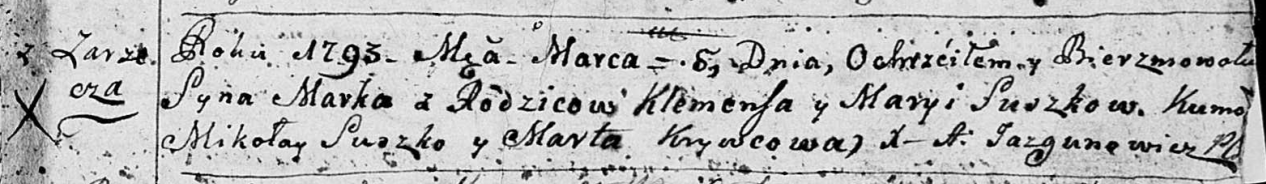 z Zarze
cza
Roku 1793. Mca Marca 5, Dnia, Ochrzciłem y Bierzmowałem
Syna Marka z Rodzicow Klemensa y Maryi Suszkow. Kumo
Mikołay Suszko y Marta Krywcowa) X- A: Jazgunowicz